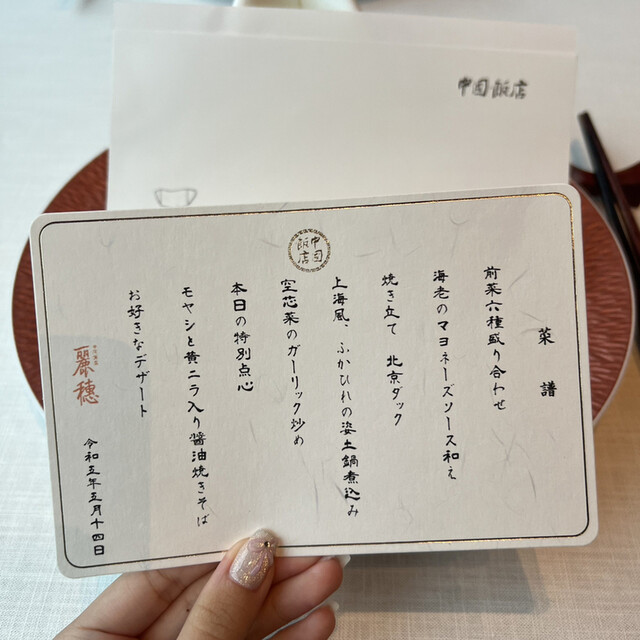 中国飯店
中国飯店
菜譜
前菜六種盛り合わせ
海老のマヨネーズソース和え
焼き立て 北京ダック
上海風、ふかひれの姿土鍋煮込み
空芯菜のガーリック炒め
本日の特別点心
モヤシと黄ニラ入り醤油焼きそば
お好きなデザート
麗穂
令和五年五月十四日